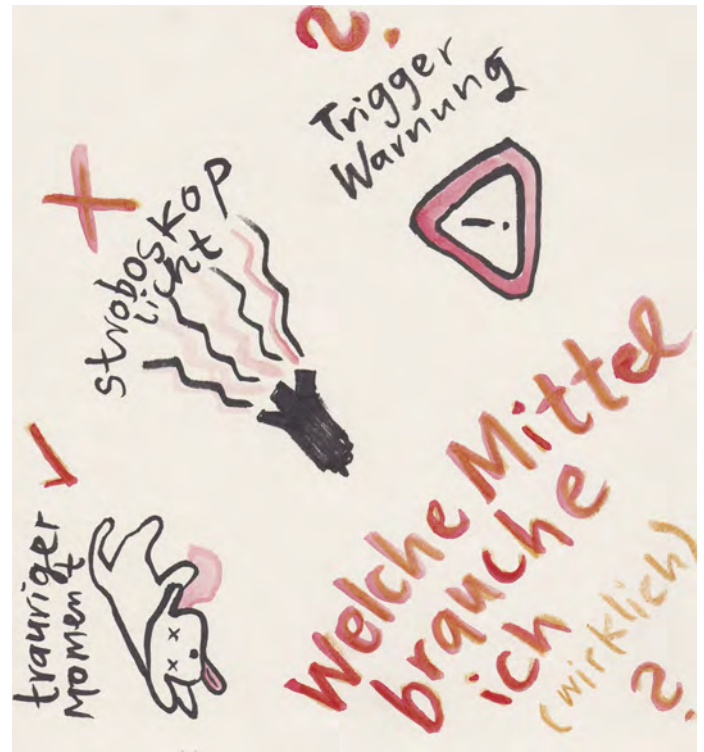 ?
Trigger
Warnung
!
stroboskop
licht
trauriger
Moment
Welche Mittel
brauche
ich
(wirklich)
?